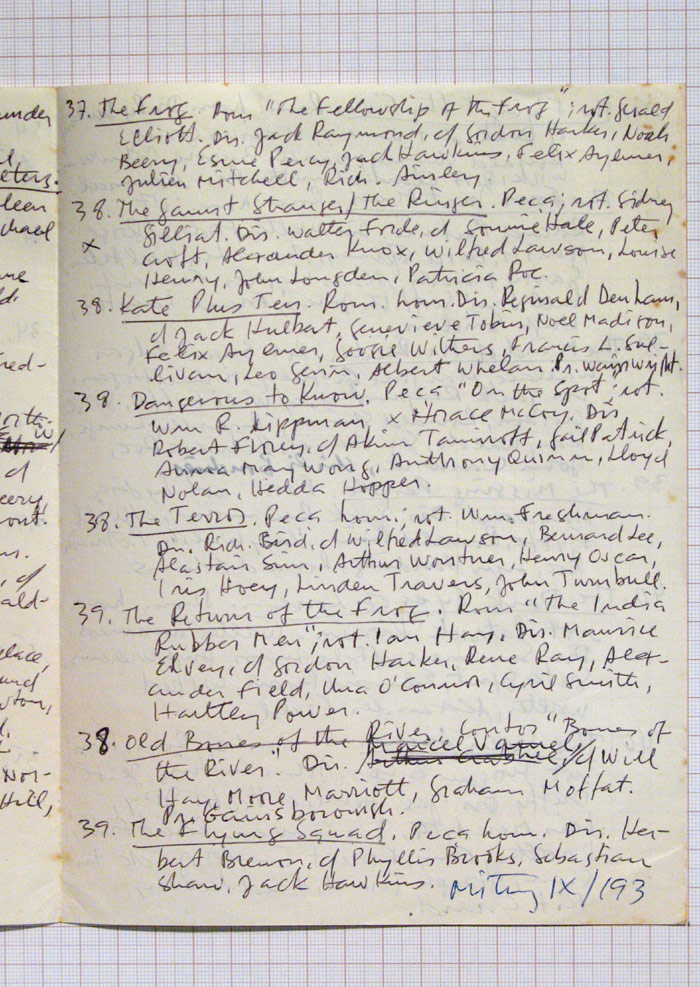 under
37. The Frog. Rom "The Fellowship of the Frog"; rot. Gerald
Elliott. Dir. Jack Raymond, cf Gordon Harker, Noah
Beery, Esme Percy, Jack Hawkins, Felix Aylmer,
Julien Mitchell, Rich. Ainley
38. The Gaunt Stranger/The Ringer. Peça; rot. Sidney
Gilliat. Dir. Walter Forde, cf Sonnie Hale, Peter
x Croft, Alexander Knox, Wilfred Lawson, Louise
Henry, John Longden, Patricia Roc.
38. Kate Plus Ten. Rom. hom. Dir. Reginald Denham,
cf Jack Hulbert, Genevieve Tobin, Noel Madison,
Felix Aylmer, Googie Withers, Francis L. Sul-
livan, Leo Genn. Albert Whelan. Pr. Wainwright.
38. Dangerous to Know. Peça "On the Spot"; rot.
Wm R. Lippman, x Horace McCoy. Dir.
Robert Florey, cf Akim Tamiroff, Gail Patrick,
Anna May Wong, Anthony Quinn, Lloyd
Nolan, Hedda Hopper.
38. The Terror. Peça hom.; rot. Wm. Freshman.
Dir. Rich. Bird, cf Wilfred Lawson, Bernard Lee,
Alastair Sim, Arthur Wontner, Henry Oscar,
Iris Hoey, Linden Travers, John Turnbull.
39. The Return of the Frog. Rom "The India
Rubber Men"; rot. Ian Hay. Dir. Maurice
Elvey, cf Gordon Harker, Rene Ray, Alex-
ander Field, Una O'Connor, Cyril Smith,
Hartley Power.
38. Old Bones of the River. Contos "Bones of
the River". Dir. Marcel Varnel, cf Will
Hay, Moore Marriott, Graham Moffat.
Pr. Gainsborough.
39. The Flying Squad. Peça hom. Dir. Her-
bert Brenon, cf Phyllis Brooks, Sebastian
Shaw, Jack Hawkins.
IX/193